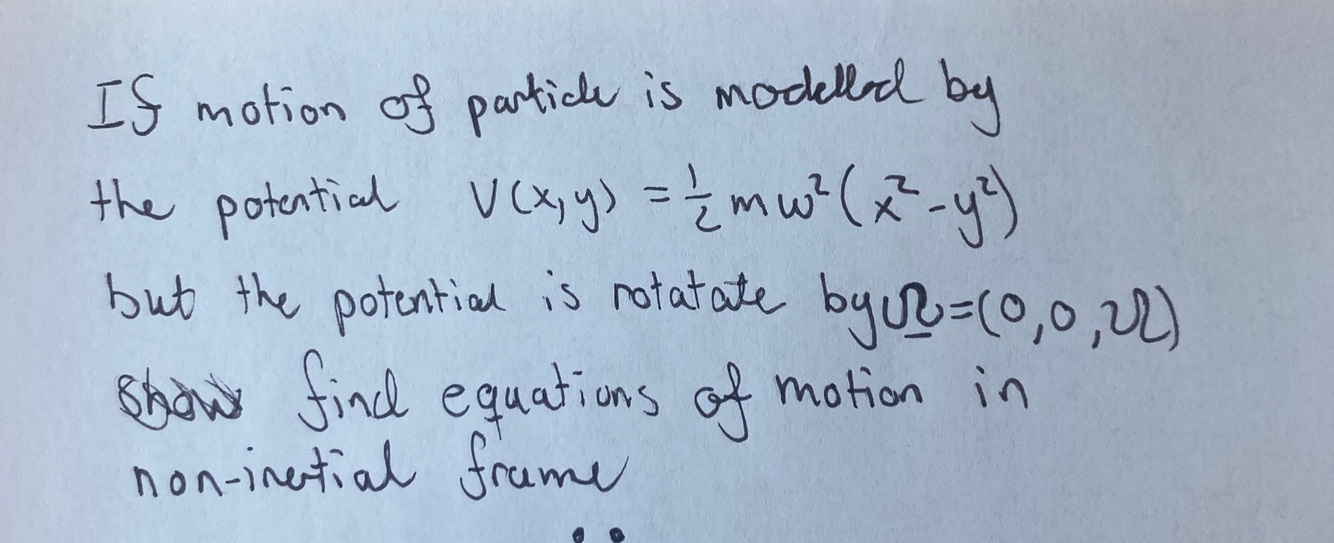 If motion of particle is modelled by
the potential V(x,y) = ½ mω²(x²-y²)
but the potential is rotatate by Ω=(0,0,Ω)
find equations of motion in
non-inertial frame